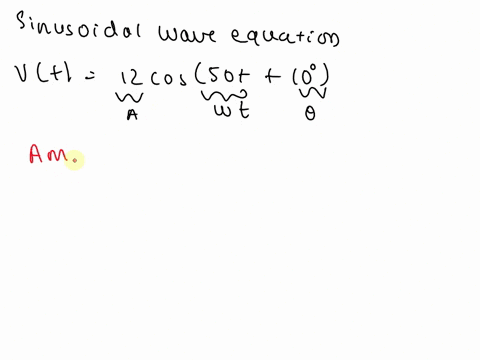 Sinusoidal wave equation
V(t) = 12 cos (50t + 10°)
A wt θ
Am.